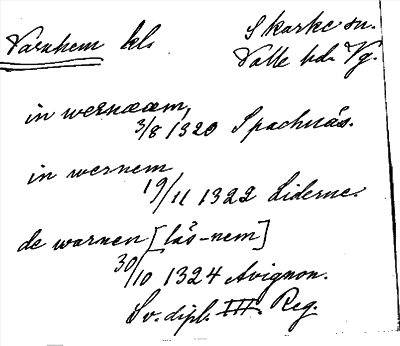 Varnhem kl. Skarke sn.
Valle hd. Vg.
in wernææm,
3/8 1320 Spachnäs.
in wernem
19/11 1322 Liderne.
de warnen [läs -nem]
30/10 1324 Avignon.
Sv. dipl. III. Reg.